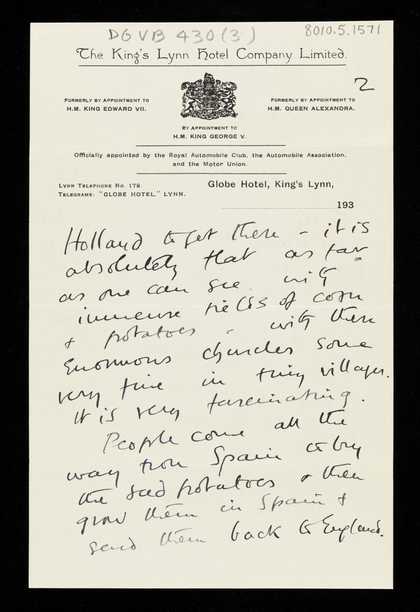 DGVB 430 (3)
8010.5.1571
The King's Lynn Hotel Company Limited.
2
FORMERLY BY APPOINTMENT TO
H.M. KING EDWARD VII.
FORMERLY BY APPOINTMENT TO
H.M. QUEEN ALEXANDRA.
BY APPOINTMENT TO
H.M. KING GEORGE V.
Officially appointed by the Royal Automobile Club, the Automobile Association,
and the Motor Union.
LYNN TELEPHONE NO. 178
TELEGRAMS: "GLOBE HOTEL," LYNN.
Globe Hotel, King's Lynn,
193
Holland to get there - it is
absolutely flat as far
as one can see with
immense fields of corn
& potatoes - with these
enormous churches some
very fine in tiny villages.
It is very fascinating.
People come all the
way from Spain to buy
the seed potatoes & then
grow them in Spain &
send them back to England.